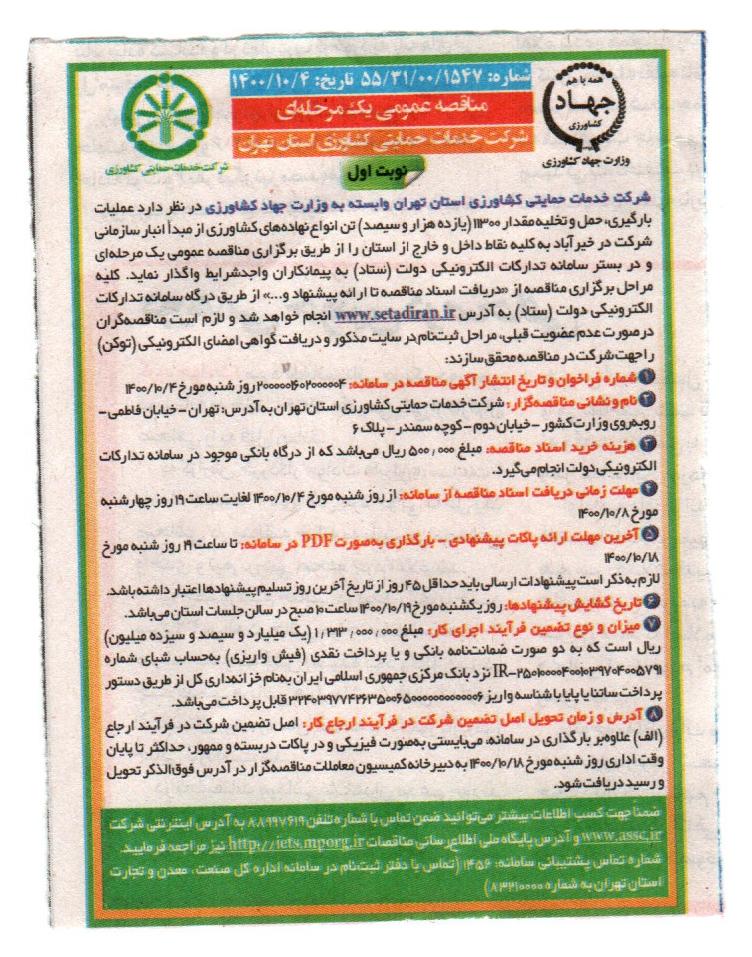 شماره: ۵۵/۳۱/۰۰/۱۵۴۷ تاریخ: ۱۴۰۰/۱۰/۴
مناقصه عمومی یک مرحله‌ای
شرکت خدمات حمایتی کشاورزی استان تهران
همه با هم
جهاد
کشاورزی
وزارت جهاد کشاورزی
شرکت خدمات حمایتی کشاورزی
نوبت اول
شرکت خدمات حمایتی کشاورزی استان تهران وابسته به وزارت جهاد کشاورزی در نظر دارد عملیات
بارگیری، حمل و تخلیه مقدار ۱۱۳۰۰ (یازده هزار و سیصد) تن انواع نهاده‌های کشاورزی از مبدأ انبار سازمانی
شرکت در خیرآباد به کلیه نقاط داخل و خارج از استان را از طریق برگزاری مناقصه عمومی یک مرحله‌ای
و در بستر سامانه تدارکات الکترونیکی دولت (ستاد) به پیمانکاران واجدشرایط واگذار نماید. کلیه
مراحل برگزاری مناقصه از «دریافت اسناد مناقصه تا ارائه پیشنهاد و...» از طریق درگاه سامانه تدارکات
الکترونیکی دولت (ستاد) به آدرس www.setadiran.ir انجام خواهد شد و لازم است مناقصه‌گران
درصورت عدم عضویت قبلی، مراحل ثبت‌نام در سایت مذکور و دریافت گواهی امضای الکترونیکی (توکن)
را جهت شرکت در مناقصه محقق سازند:
۱ شماره فراخوان و تاریخ انتشار آگهی مناقصه در سامانه: ۲۰۰۰۰۰۱۶۰۲۰۰۰۰۰۴ روز شنبه مورخ ۱۴۰۰/۱۰/۴
۲ نام و نشانی مناقصه‌گزار: شرکت خدمات حمایتی کشاورزی استان تهران به آدرس: تهران - خیابان فاطمی -
روبه‌روی وزارت کشور - خیابان دوم - کوچه سمندر - پلاک ۶
۳ هزینه خرید اسناد مناقصه: مبلغ ۵۰۰,۰۰۰ ریال می‌باشد که از درگاه بانکی موجود در سامانه تدارکات
الکترونیکی دولت انجام می‌گیرد.
۴ مهلت زمانی دریافت اسناد مناقصه از سامانه: از روز شنبه مورخ ۱۴۰۰/۱۰/۴ لغایت ساعت ۱۹ روز چهارشنبه
مورخ ۱۴۰۰/۱۰/۸
۵ آخرین مهلت ارائه پاکات پیشنهادی - بارگذاری به‌صورت PDF در سامانه: تا ساعت ۱۹ روز شنبه مورخ
۱۴۰۰/۱۰/۱۸
لازم به ذکر است پیشنهادات ارسالی باید حداقل ۴۵ روز از تاریخ آخرین روز تسلیم پیشنهادها اعتبار داشته باشد.
۶ تاریخ گشایش پیشنهادها: روز یکشنبه مورخ ۱۴۰۰/۱۰/۱۹ ساعت ۱۰ صبح در سالن جلسات استان می‌باشد.
۷ میزان و نوع تضمین فرآیند اجرای کار: مبلغ ۱,۳۱۳,۰۰۰,۰۰۰ (یک میلیارد و سیصد و سیزده میلیون)
ریال است که به دو صورت ضمانت‌نامه بانکی و یا پرداخت نقدی (فیش واریزی) به‌حساب شبای شماره
نزد بانک مرکزی جمهوری اسلامی ایران به‌نام خزانه‌داری کل از طریق دستور
پرداخت ساتنا یا پایا با شناسه واریز قابل پرداخت می‌باشد.
۸ آدرس و زمان تحویل اصل تضمین شرکت در فرآیند ارجاع کار: اصل تضمین شرکت در فرآیند ارجاع
(الف) علاوه‌بر بارگذاری در سامانه، می‌بایستی به‌صورت فیزیکی و در پاکات دربسته و ممهور، حداکثر تا پایان
وقت اداری روز شنبه مورخ ۱۴۰۰/۱۰/۱۸ به دبیرخانه کمیسیون معاملات مناقصه‌گزار در آدرس فوق‌الذکر تحویل
و رسید دریافت شود.
ضمناً جهت کسب اطلاعات بیشتر می‌توانید ضمن تماس با شماره تلفن ۸۸۹۹۷۶۱۹ به آدرس اینترنتی شرکت
www.assc.ir و آدرس پایگاه ملی اطلاع‌رسانی مناقصات http://iets.mporg.ir نیز مراجعه فرمایید.
شماره تماس پشتیبانی سامانه: ۱۴۵۶ (تماس با دفتر ثبت‌نام در سامانه اداره کل صنعت، معدن و تجارت
استان تهران به شماره ۸۳۲۱۰۰۰۰)